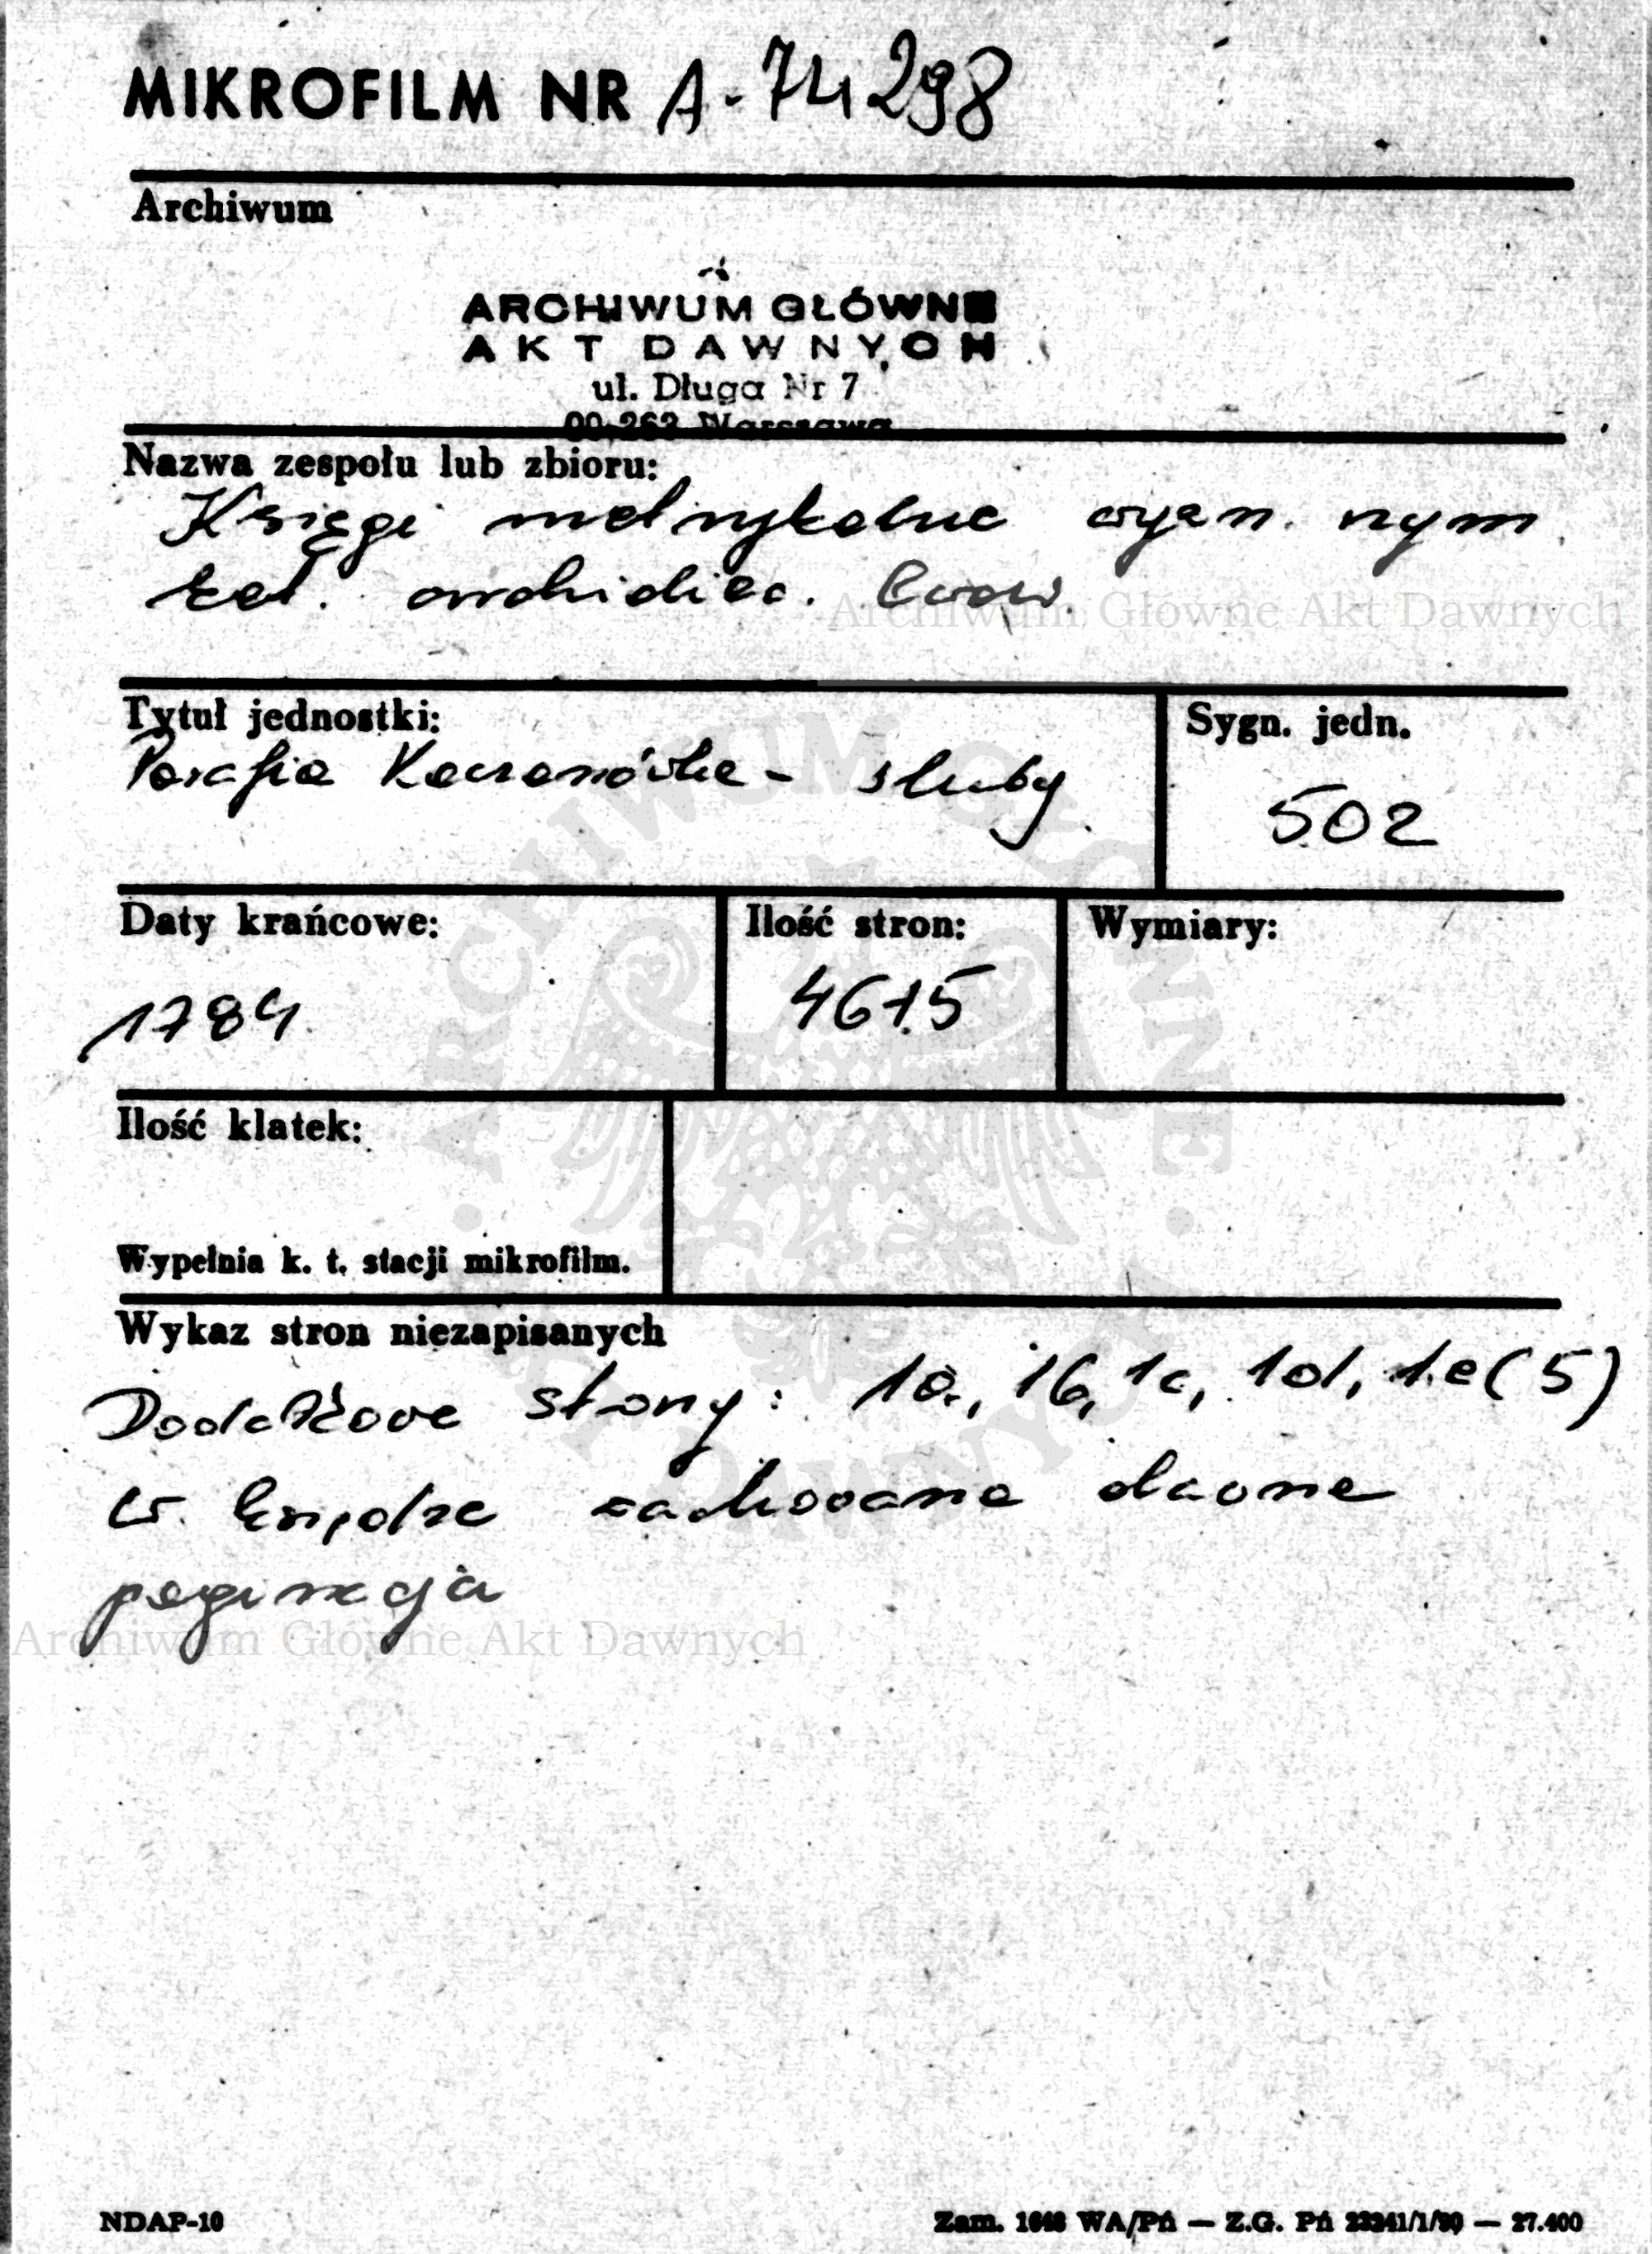 MIKROFILM NR A-74298
Archiwum
ARCHIWUM GŁÓWNE
AKT DAWNYCH
ul. Długa Nr 7
00-263 Warszawa
Nazwa zespołu lub zbioru:
Księgi metrykalne wyzn. rzym
kat. archidiec. Lwow.
Archiwum Główne Akt Dawnych
Tytuł jednostki:
Parafia Kaczanówka - śluby
Sygn. jedn.
502
Daty krańcowe:
1784
Ilość stron:
46+5
Wymiary:
Ilość klatek:
Wypełnia k. t. stacji mikrofilm.
Wykaz stron niezapisanych
Dodatkowe strony: 1a, 1b, 1c, 1d, 1e (5)
W księdze zachowana dawna
paginacja
Archiwum Główne Akt Dawnych
ARCHIWUM GŁÓWNE AKT DAWNYCH
NDAP-10
Zam. 1648 WA/Pń — Z.G. Pń 23241/1/90 — 27.400